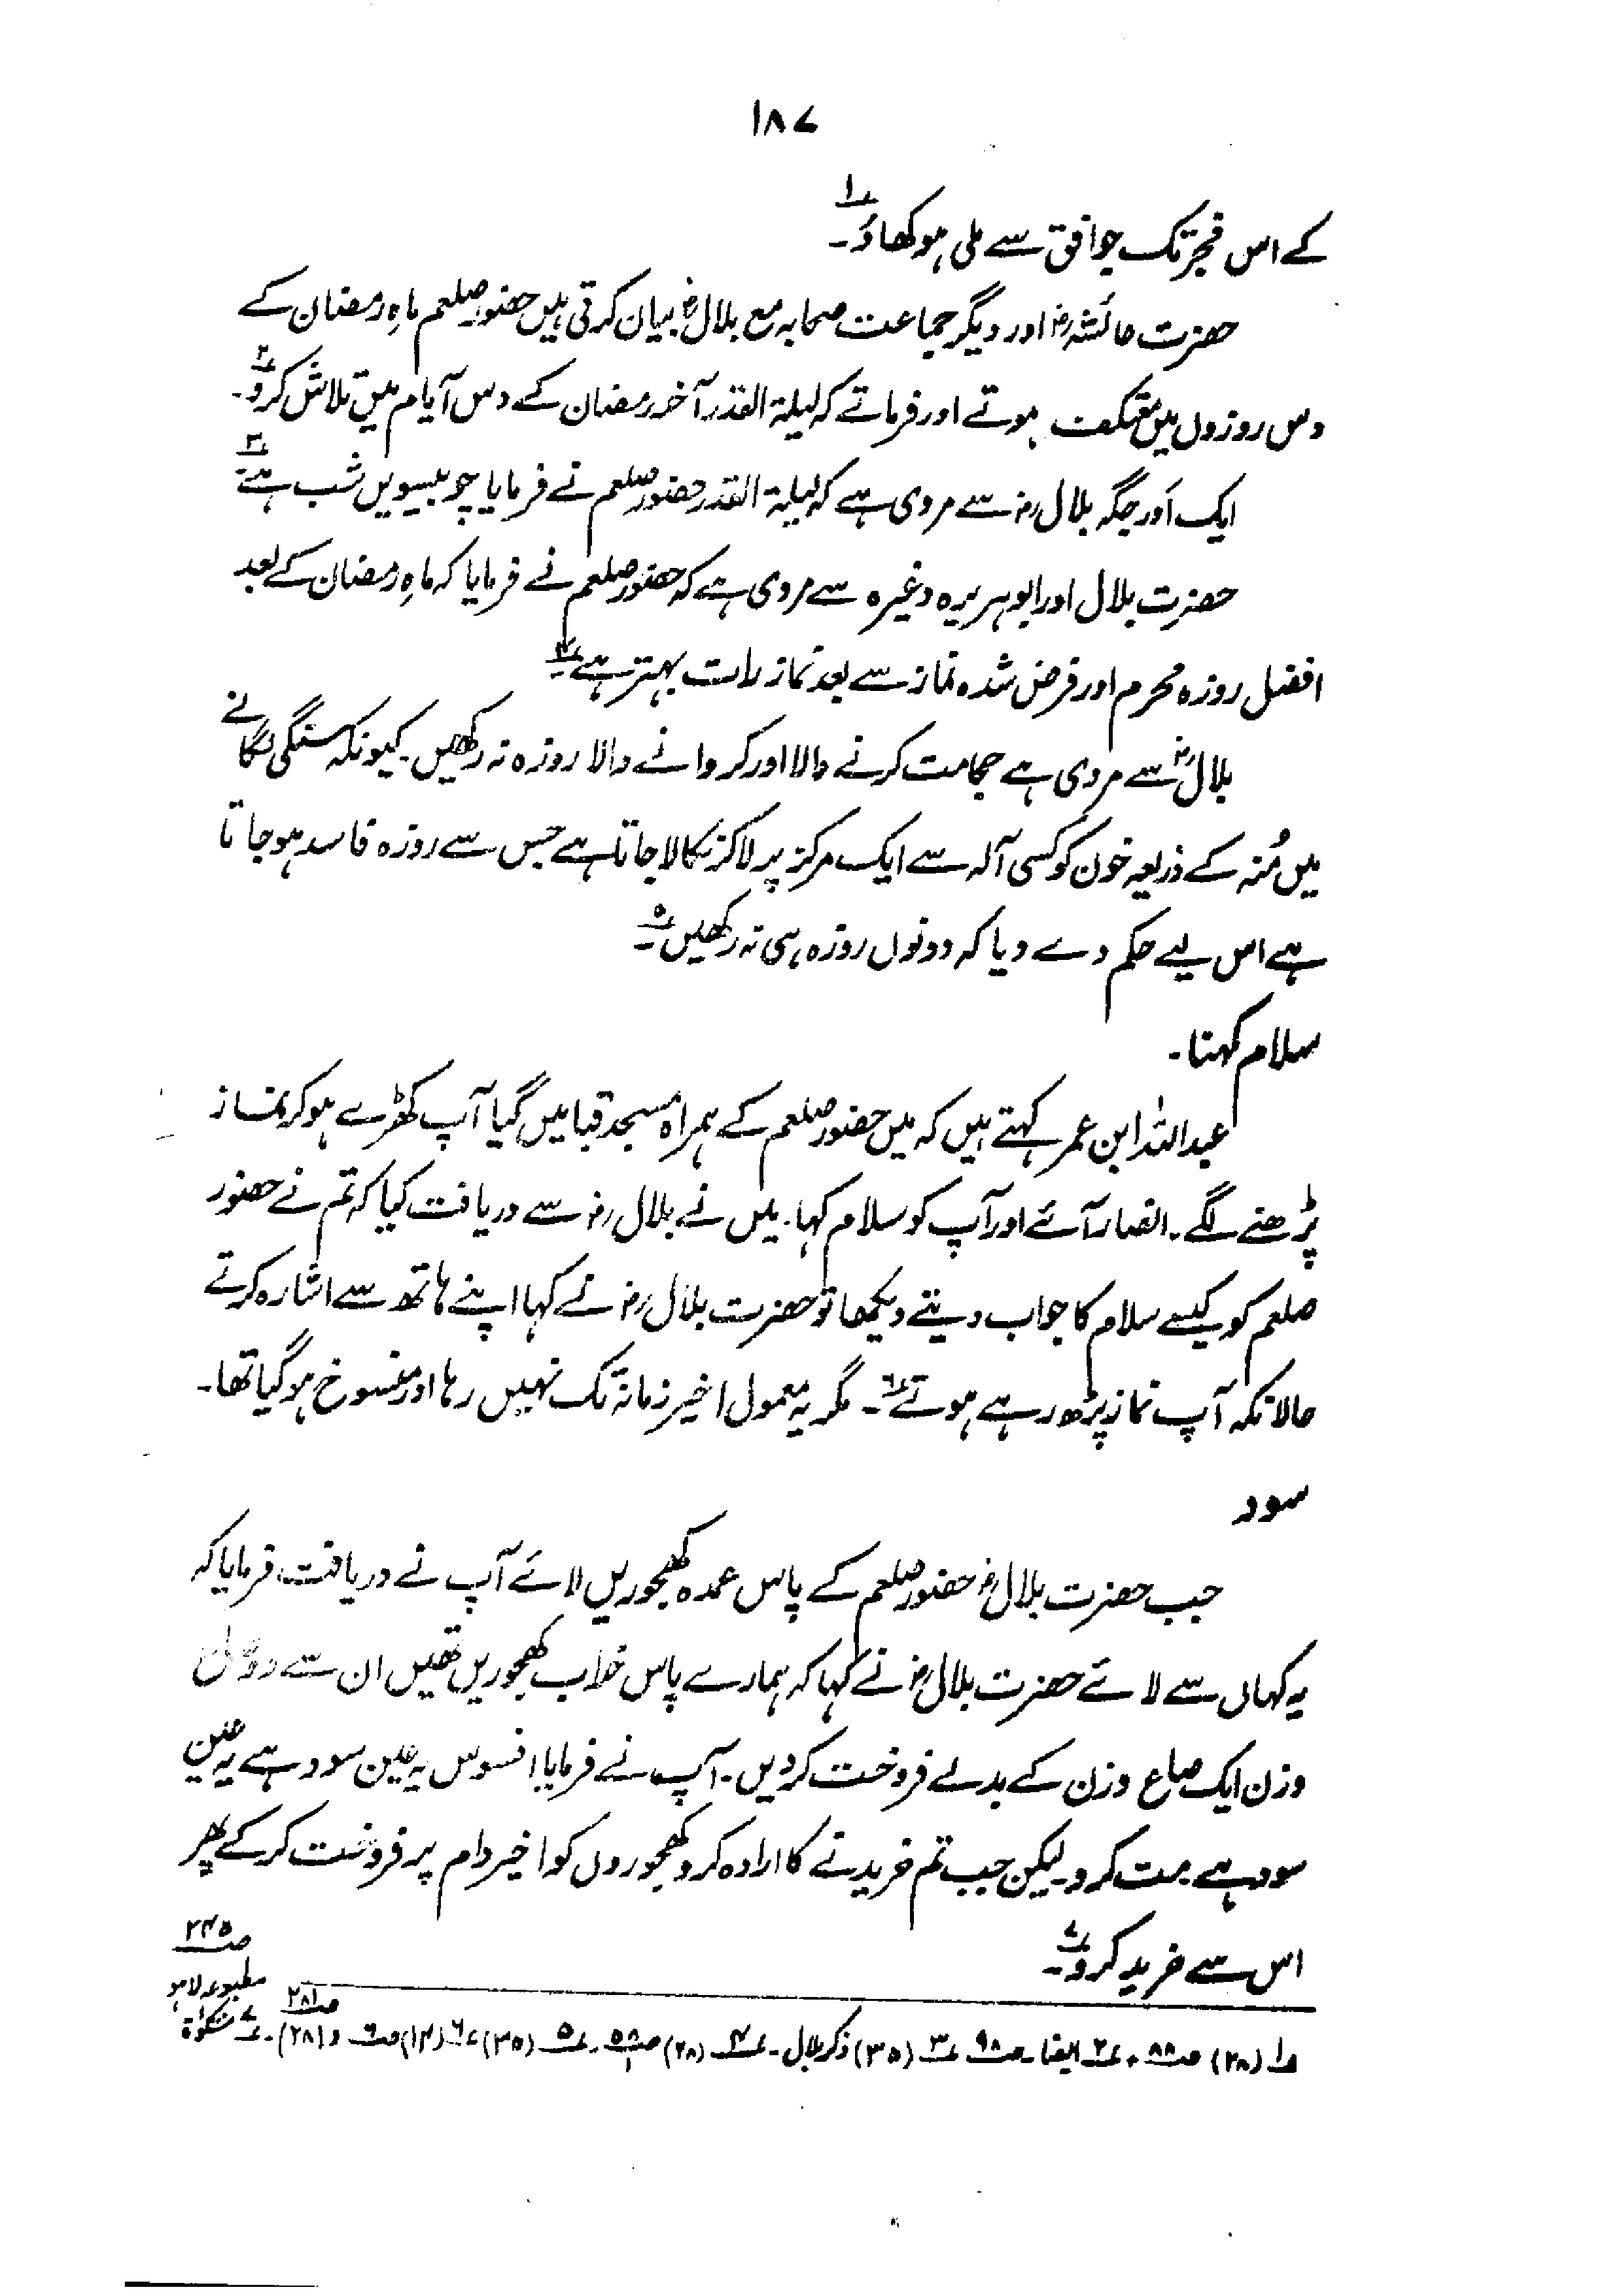 ۱۸۷
کے اس فجر تک جو افق سے ملی ہو کھاؤ۔ ؎۱
حضرت عائشہؓ اور دیگر جماعت صحابہ مع بلالؓ بیان کرتی ہیں حضور صلعم ماہِ رمضان کے
دس روزوں میں معتکف ہوتے اور فرماتے کہ لیلۃ القدر آخر رمضان کے دس آیام میں تلاش کرو۔ ؎۲
ایک اَور جگہ بلالؓ سے مروی ہے کہ لیلۃ القدر حضور صلعم نے فرمایا چوبیسویں شب ہے ؎۳
حضرت بلال اور ابوہریرہ وغیرہ سے مروی ہے کہ حضور صلعم نے فرمایا کہ ماہِ رمضان کے بعد
افضل روزہ محرم اور فرض شدہ نماز سے بعد نماز رات بہتر ہے ؎۴
بلالؓ سے مروی ہے حجامت کرنے والا اور کروانے والا روزہ نہ رکھیں۔ کیونکہ سنگی لگانے
میں مُنہ کے ذریعہ خون کو کسی آلہ سے ایک مرکز پر لا کر نکالا جاتا ہے جس سے روزہ فاسد ہو جاتا
ہے اس لیے حکم دے دیا کہ دونوں روزہ ہی نہ رکھیں۔ ؎۵
سلام کہنا۔
عبداللہ ابن عمر کہتے ہیں کہ میں حضور صلعم کے ہمراہ مسجد قبا میں گیا آپ کھڑے ہو کر نماز
پڑھنے لگے۔ انصار آئے اور آپ کو سلام کہا۔ میں نے بلالؓ سے دریافت کیا کہ تم نے حضور
صلعم کو کیسے سلام کا جواب دیتے دیکھا تو حضرت بلالؓ نے کہا اپنے ہاتھ سے اشارہ کرتے
حالانکہ آپ نماز پڑھ رہے ہوتے ؎۶۔ مگر یہ معمول اخیر زمانہ تک نہیں رہا اور منسوخ ہو گیا تھا۔
سود
جب حضرت بلالؓ حضور صلعم کے پاس عمدہ کھجوریں لائے آپ نے دریافت فرمایا کہ
یہ کہاں سے لائے حضرت بلالؓ نے کہا کہ ہمارے پاس خراب کھجوریں تھیں ان سے دو
وزن ایک صاع وزن کے بدلے فروخت کر دیں۔ آپ نے فرمایا افسوس یہ عین سود ہے یہ عین
سود ہے مت کرو۔ لیکن جب تم خریدنے کا ارادہ کرو کھجوروں کو اخیر دام پر فروخت کر کے پھر
اس سے خرید کرو۔ ؎۷
؎۱ (۲۸) صـ۸۸ ؎۲ ایضا۔ صـ۹۸ ؎۳ (۳۵) ذکر بلال۔ ؎۴ (۲۸) صـ۵۸۔ ؎۵ (۳۵) ؎۶ (۱۴) صـ۶ و (۲۸) صـ۲۸۱۔ ؎۷ مشکوٰۃ
مطبوعہ لاہو صـ۲۴۵